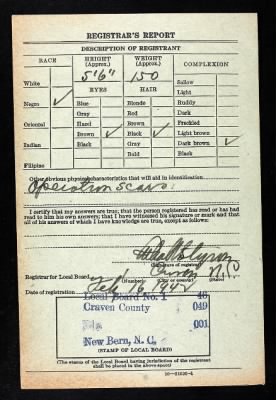 REGISTRAR'S REPORT
DESCRIPTION OF REGISTRANT
RACE HEIGHT (Approx.) WEIGHT (Approx.) COMPLEXION
5'6" 150
White Sallow
EYES HAIR Light
Negro ✓ Blue Blonde Ruddy
Gray Red Dark
Oriental Hazel Brown Freckled
Brown ✓ Black ✓ Light brown
Indian Black Gray Dark brown ✓
Bald Black
Filipino
Other obvious physical characteristics that will aid in identification
Operation scars
I certify that my answers are true; that the person registered has read or has had
read to him his own answers; that I have witnessed his signature or mark and that
all of his answers of which I have knowledge are true, except as follows:
(Signature of registrar)
Registrar for Local Board N.C.
(Number)
Date of registration Feb 16 1942
Local Board No. 1 46
Craven County 049
001
New Bern, N. C.
(STAMP OF LOCAL BOARD)
(The stamp of the Local Board having jurisdiction of the registrant
shall be placed in the above space)